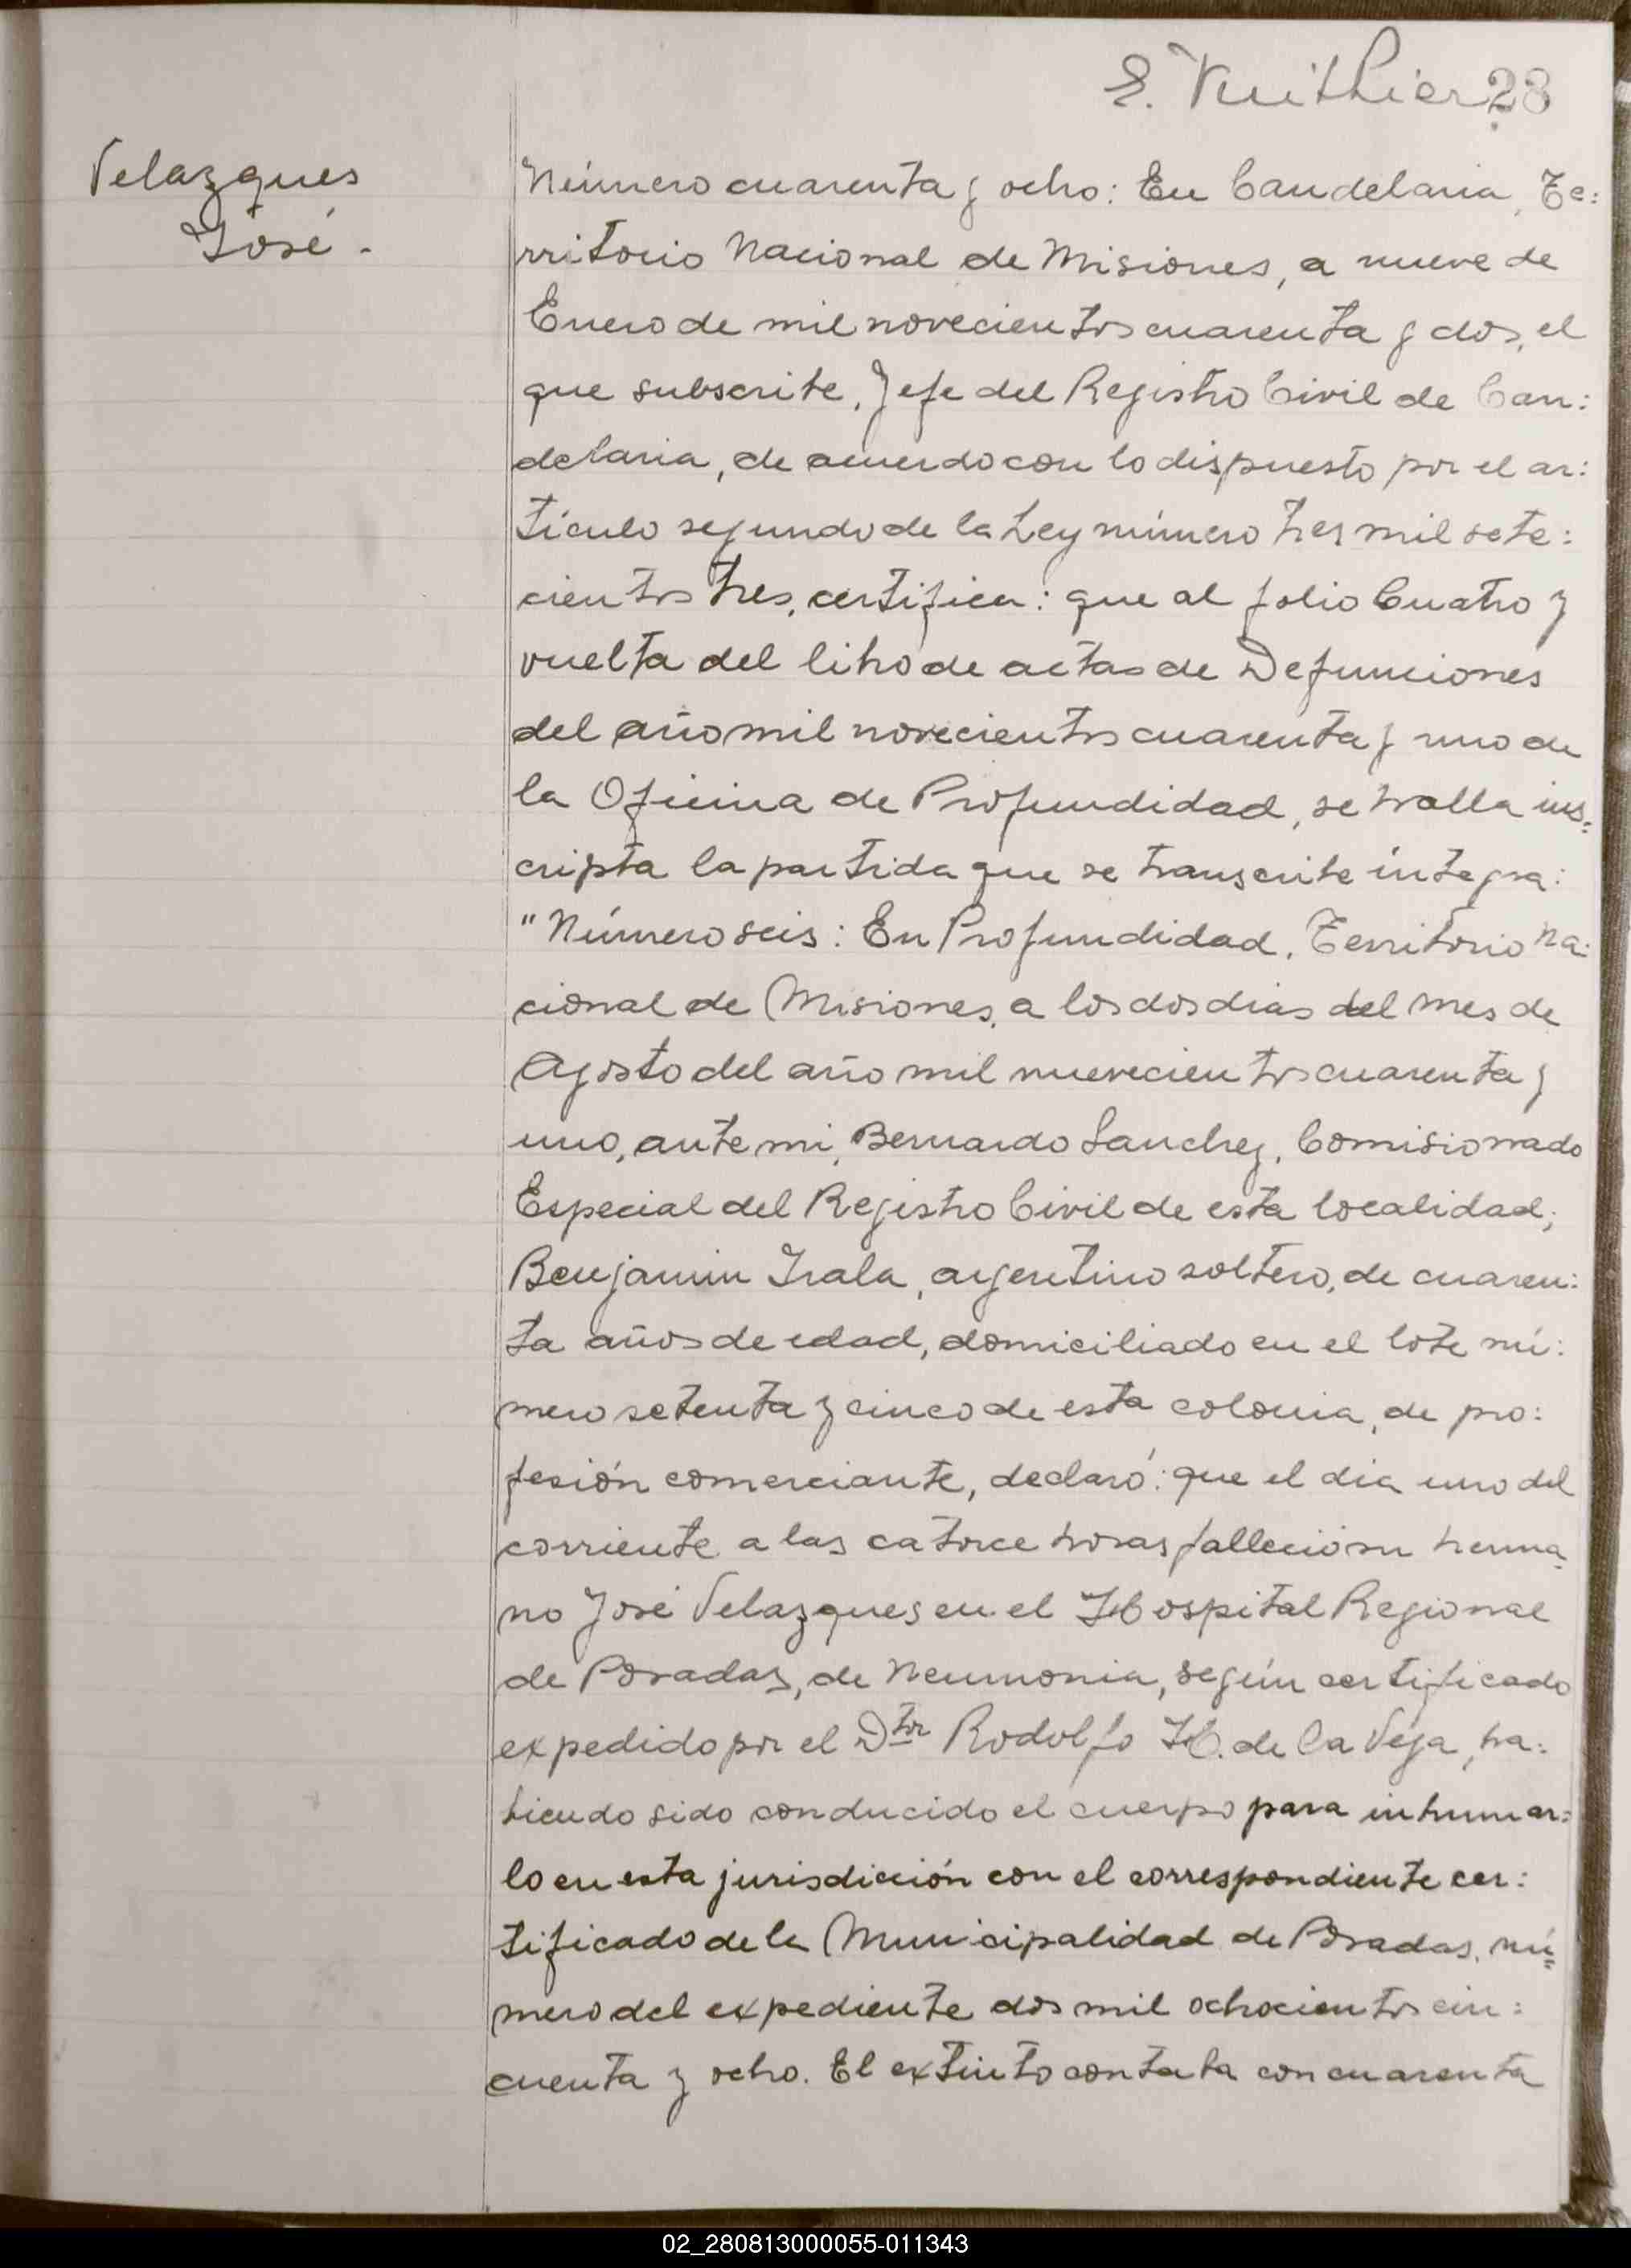 E. Vuithier 28
Velazques
José.
Número cuarenta y ocho: En Candelaria, Te:
rritorio Nacional de Misiones, a nueve de
Enero de mil novecientos cuarenta y dos, el
que subscribe, Jefe del Registro Civil de Can:
delaria, de acuerdo con lo dispuesto por el ar:
tículo segundo de la Ley número tres mil sete:
cientos tres, certifica: que al folio Cuatro y
vuelta del libro de actas de Defunciones
del año mil novecientos cuarenta y uno de
la Oficina de Profundidad, se halla ins:
cripta la partida que se transcribe íntegra:
"Número seis: En Profundidad, Territorio Na:
cional de Misiones, a los dos dias del mes de
Agosto del año mil nuevecientos cuarenta y
uno, ante mi, Bernardo Sanchez, Comisionado
Especial del Registro Civil de esta localidad;
Benjamin Irala, argentino soltero, de cuaren:
ta años de edad, domiciliado en el lote nú:
mero setenta y cinco de esta colonia, de pro:
fesión comerciante, declaró: que el dia uno del
corriente a las catorce horas falleció su herma:
no José Velazques en el Hospital Regional
de Posadas, de Neumonia, según certificado
expedido por el Dtor Rodolfo H. de la Vega, ha:
biendo sido conducido el cuerpo para inhumar:
lo en esta jurisdicción con el correspondiente cer:
tificado de la Municipalidad de Posadas, nú:
mero del expediente dos mil ochocientos cin:
cuenta y ocho. El extinto contaba con cuarenta
02_280813000055-011343